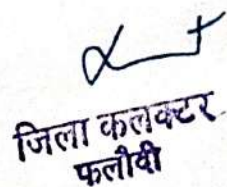 जिला कलक्टर
फलौदी